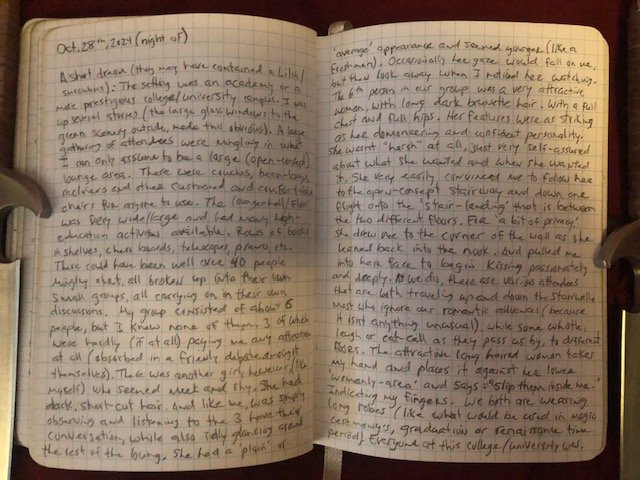 Oct. 28th, 2024 (night of)
A short dream (they may have contained a Lilin/
succubus): The setting was an academy or a
more prestigious college/university campus. I was
up several stories (the large glass windows to the
green scenery outside, made this obvious). A large
gathering of attendees were mingling in what
I can only assume to be a large (open-concept)
lounge area. There were couches, bean-bags,
recliners and other cushioned and comfortable
chairs for anyone to use. The lounge-hall/floor
was very wide/large and had many high-
education activities available. Rows of books
in shelves, chess boards, telescopes, pianos, etc.
There could have been well over 40 people
mingling about, all broken up into their own
small groups, all carrying on in their own
discussions. My group consisted of about 6
people, but I knew none of them. 3 of which
were hardly (if at all) paying me any attention
at all (absorbed in a friendly debate amongst
themselves). There was another girl, however, (like
myself) who seemed meek and shy. She had
dark, short-cut hair. And like me, was simply
observing and listening to the 3 have their
conversation, while also idly glancing around
the rest of the loung. She had a 'plain' or
'average' appearance and seemed younger (like a
freshmen). Occasionally her gaze would fall on me,
but then look away when I noticed her watching.
The 6th person in our group was a very attractive
woman, with long dark brunette hair. With a full
chest and full hips. Her features were as striking
as her domoneering and confident personality.
She wasnt "harsh" at all, just very self-assured
about what she wanted and when she wanted
it. She very easily convinced me to follow her
to the open-consept stairway and down one
flight onto the 'stair-landing' that is between
the two different floors. For 'a bit of privacy'
she drew me to the corner of the wall as she
leaned back into the nook. And pulled me
into here face to begin kissing passionately
and deeply. As we do, there are various attendees
that are both traveling up and down the stairwells,
most who ignore our romantic advances (because
it isnt anything unusual), while some whistle,
laugh or cat-call as they pass us by, to different
floors. The attractive long haired woman takes
my hand and places it against her lower
'womanly-area' and says: "Slip them inside me."
Indicating my fingers. We both are wearing
long 'robes' (like what would be used in magic
ceremonys, graduation or renaissance time
period). Everyone at this college/university was.